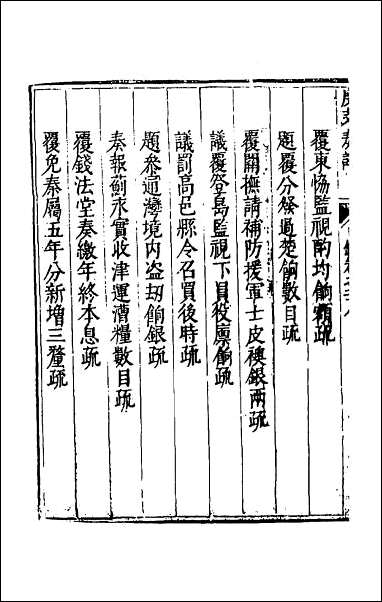 覆東協監視酌均餉額疏
題覆分發過楚餉數目疏
覆關撫請補防援軍士皮襖銀兩疏
議覆登島監視下員役廪餉疏
議罰高邑縣令召買後時疏
題參通灣境内盗刼餉銀疏
奏報薊永實收津運漕糧數目疏
覆錢法堂奏繳年終本息疏
覆免秦屬五年分新增三釐疏